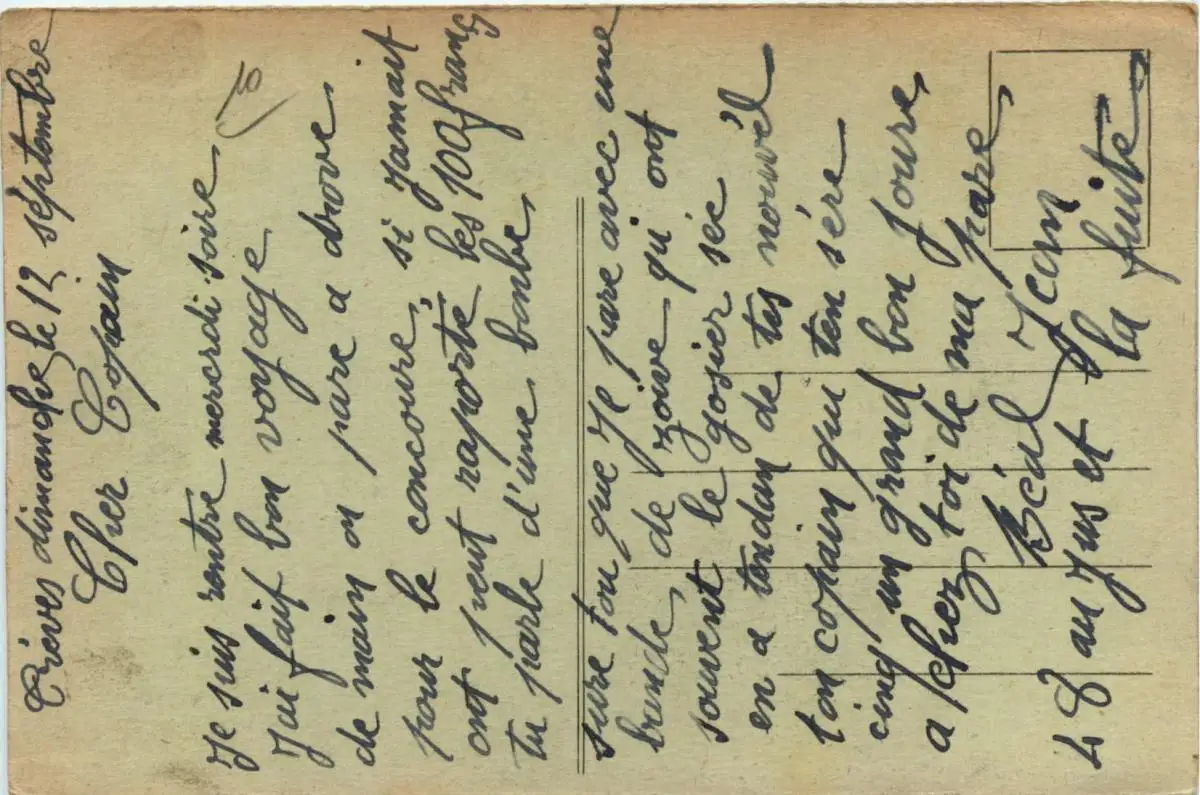 Trèves dimanche le 12 séptembre
Cher Copain
Je suis rentre mercrdi soire,
J'ai fait bon voyage
de main on pare a
pour le concoure, si Jamait
ont peut raporté les 100 franç
tu parle d'une bonbe,
sure tou que Je pare avec une
bende, de zouve qui ont
souvent le gosier séc
en a tendan de tes nouvèl
ton copain qui t'en sére
cinq un grand bon Joure,
a chez toi de ma pare,
Béal Jean
48 au Jus et la fuite,